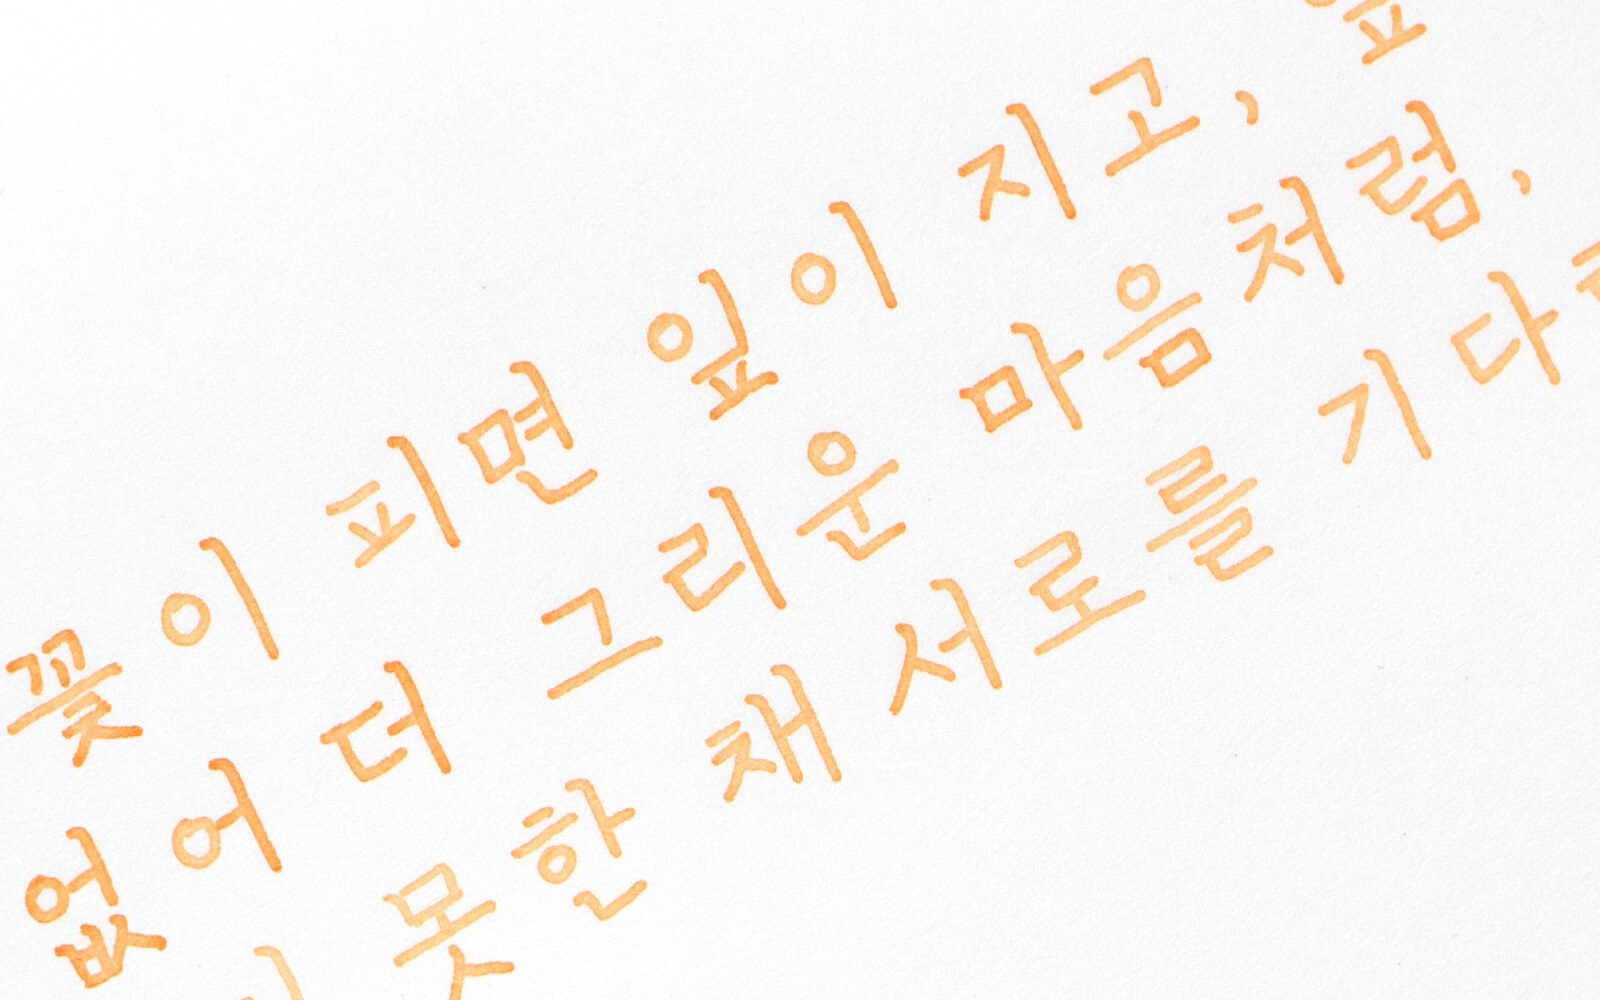 꽃이 피면 잎이 지고,
없어 더 그리운 마음처럼,
못한 채 서로를 기다